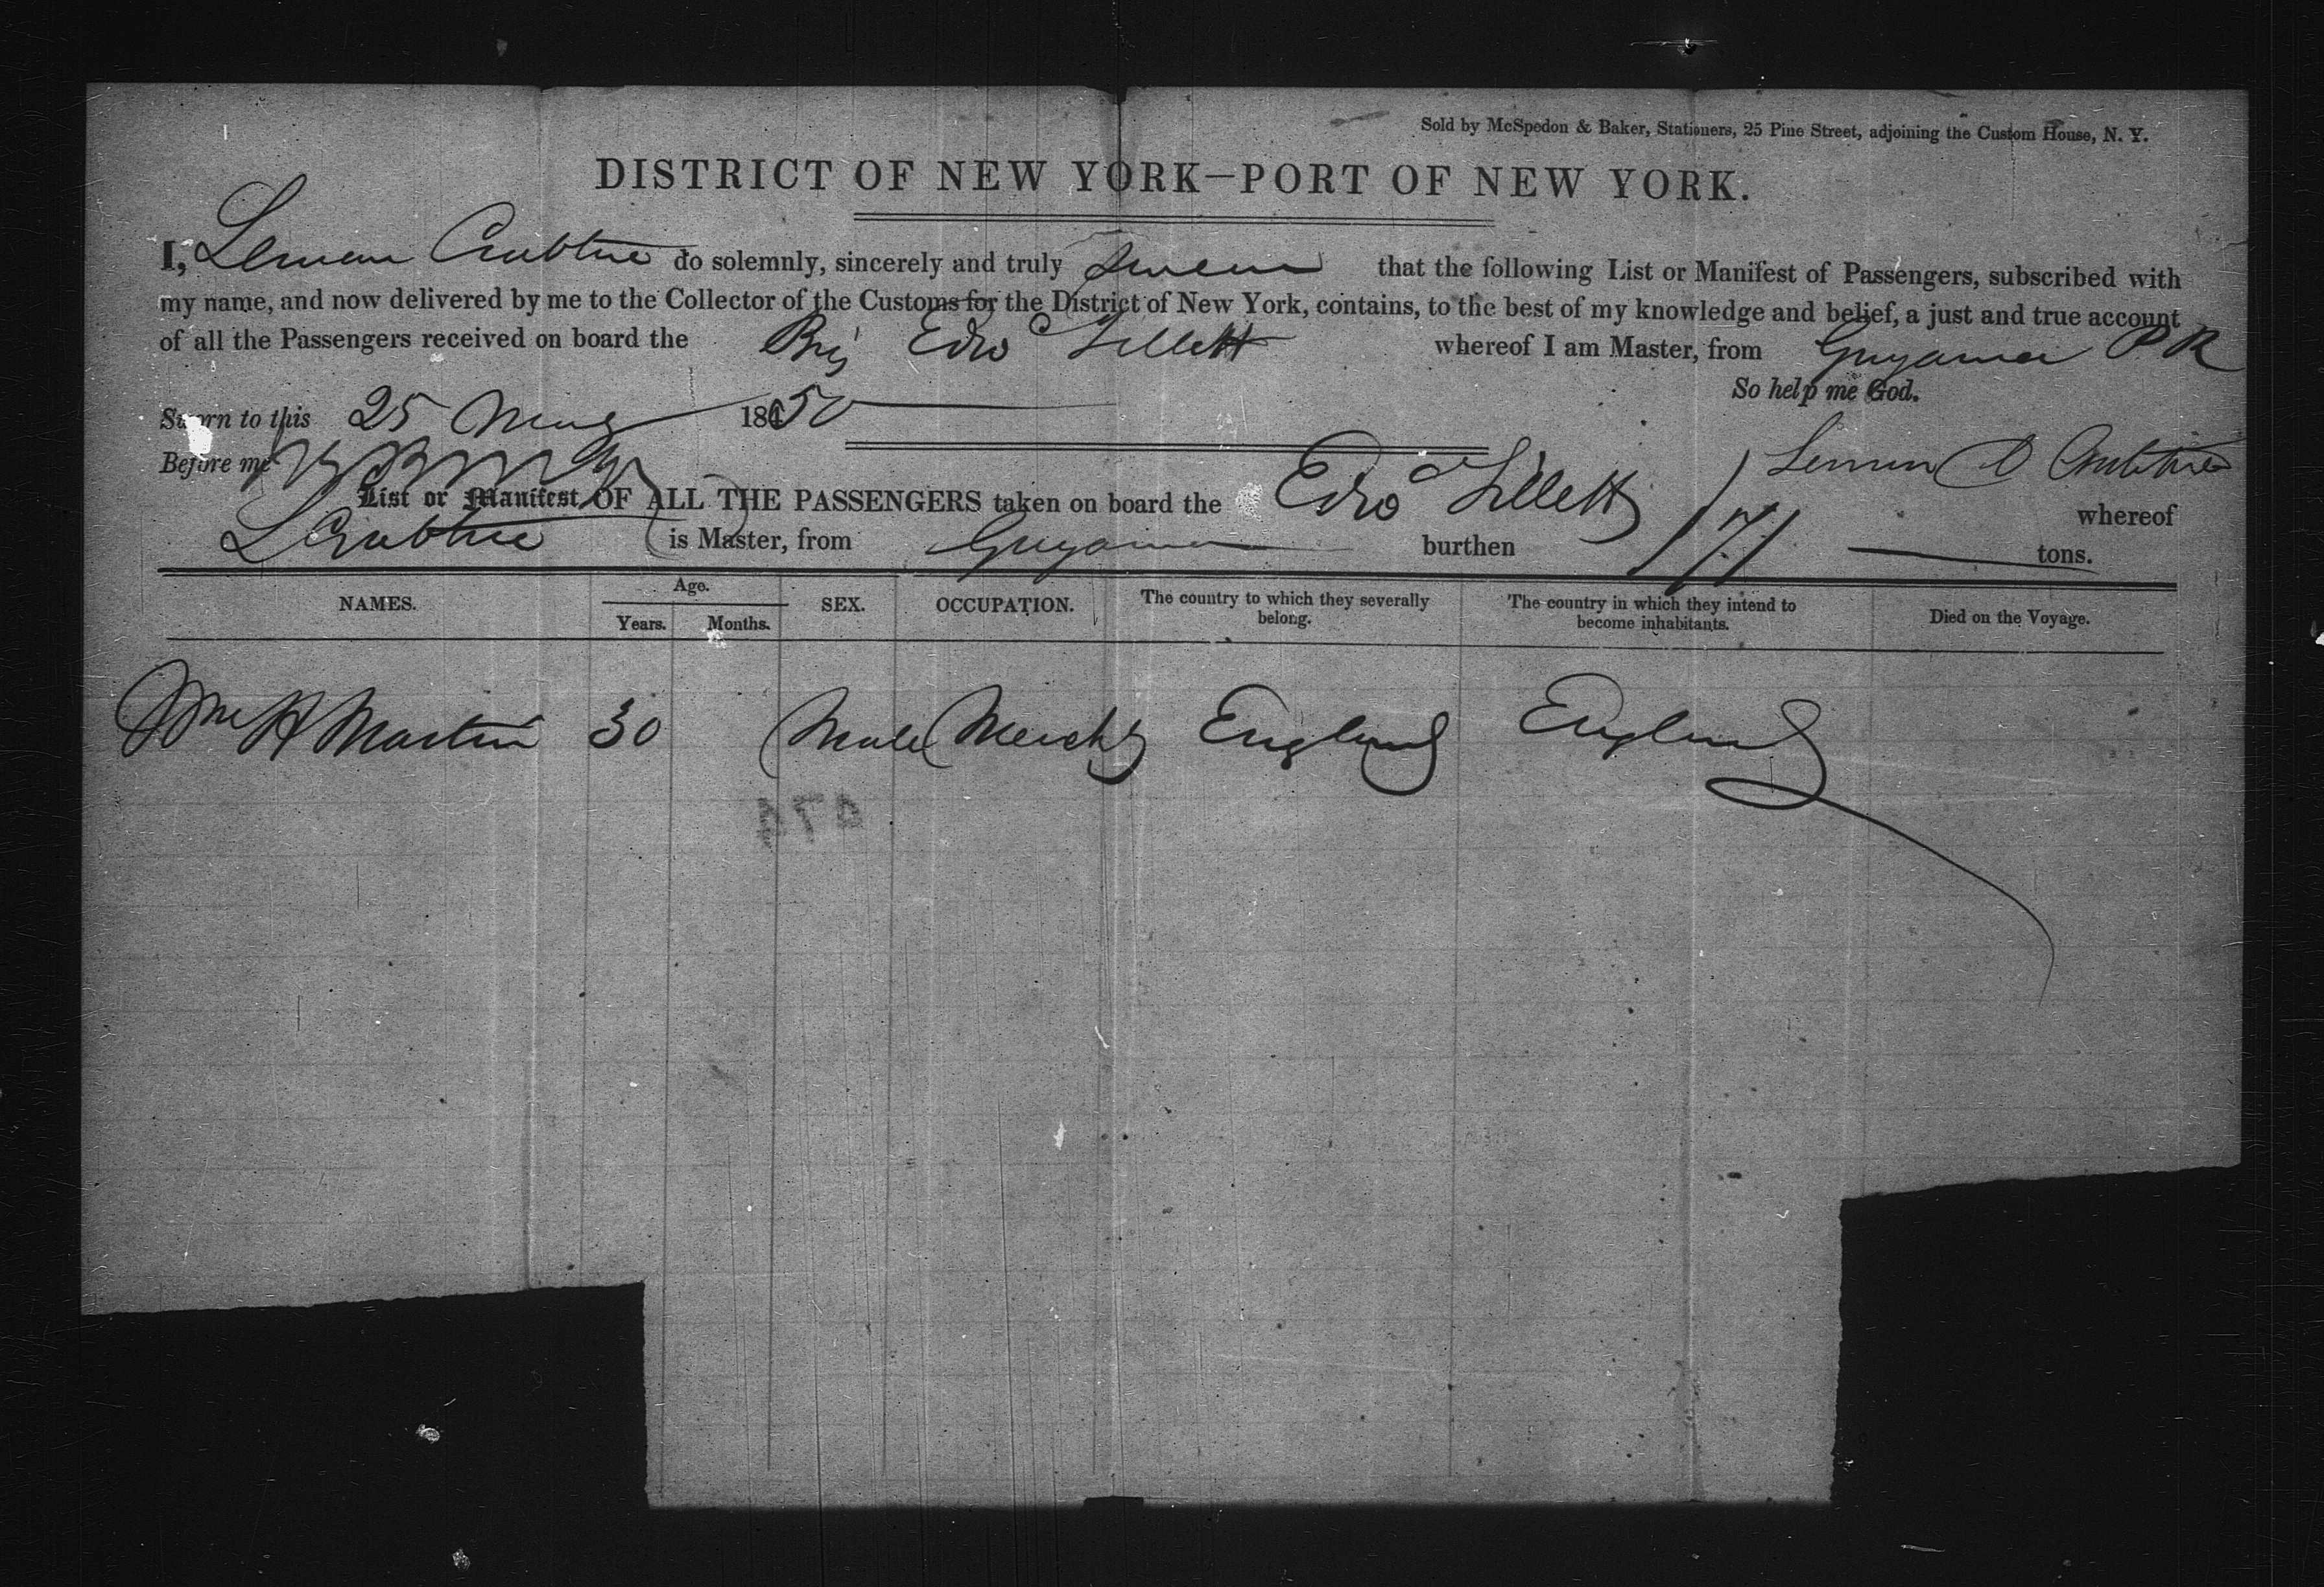 Sold by McSpedon & Baker, Stationers, 25 Pine Street, adjoining the Custom House, N. Y.
DISTRICT OF NEW YORK—PORT OF NEW YORK.
I, Leman Crabtree do solemnly, sincerely and truly swear that the following List or Manifest of Passengers, subscribed with
my name, and now delivered by me to the Collector of the Customs for the District of New York, contains, to the best of my knowledge and belief, a just and true account
of all the Passengers received on board the Brig Edwd Tillett whereof I am Master, from Guyama P R
So help me God.
Sworn to this 25 May 18450
Before me
Leman D Crabtree
List or Manifest OF ALL THE PASSENGERS taken on board the Edwd Tillett whereof
L Crabtree is Master, from Guyama burthen 171 tons.
NAMES. Age. Years. Months. SEX. OCCUPATION. The country to which they severally belong. The country in which they intend to become inhabitants. Died on the Voyage.
Wm H Martin 30 Male Mercht England England
474